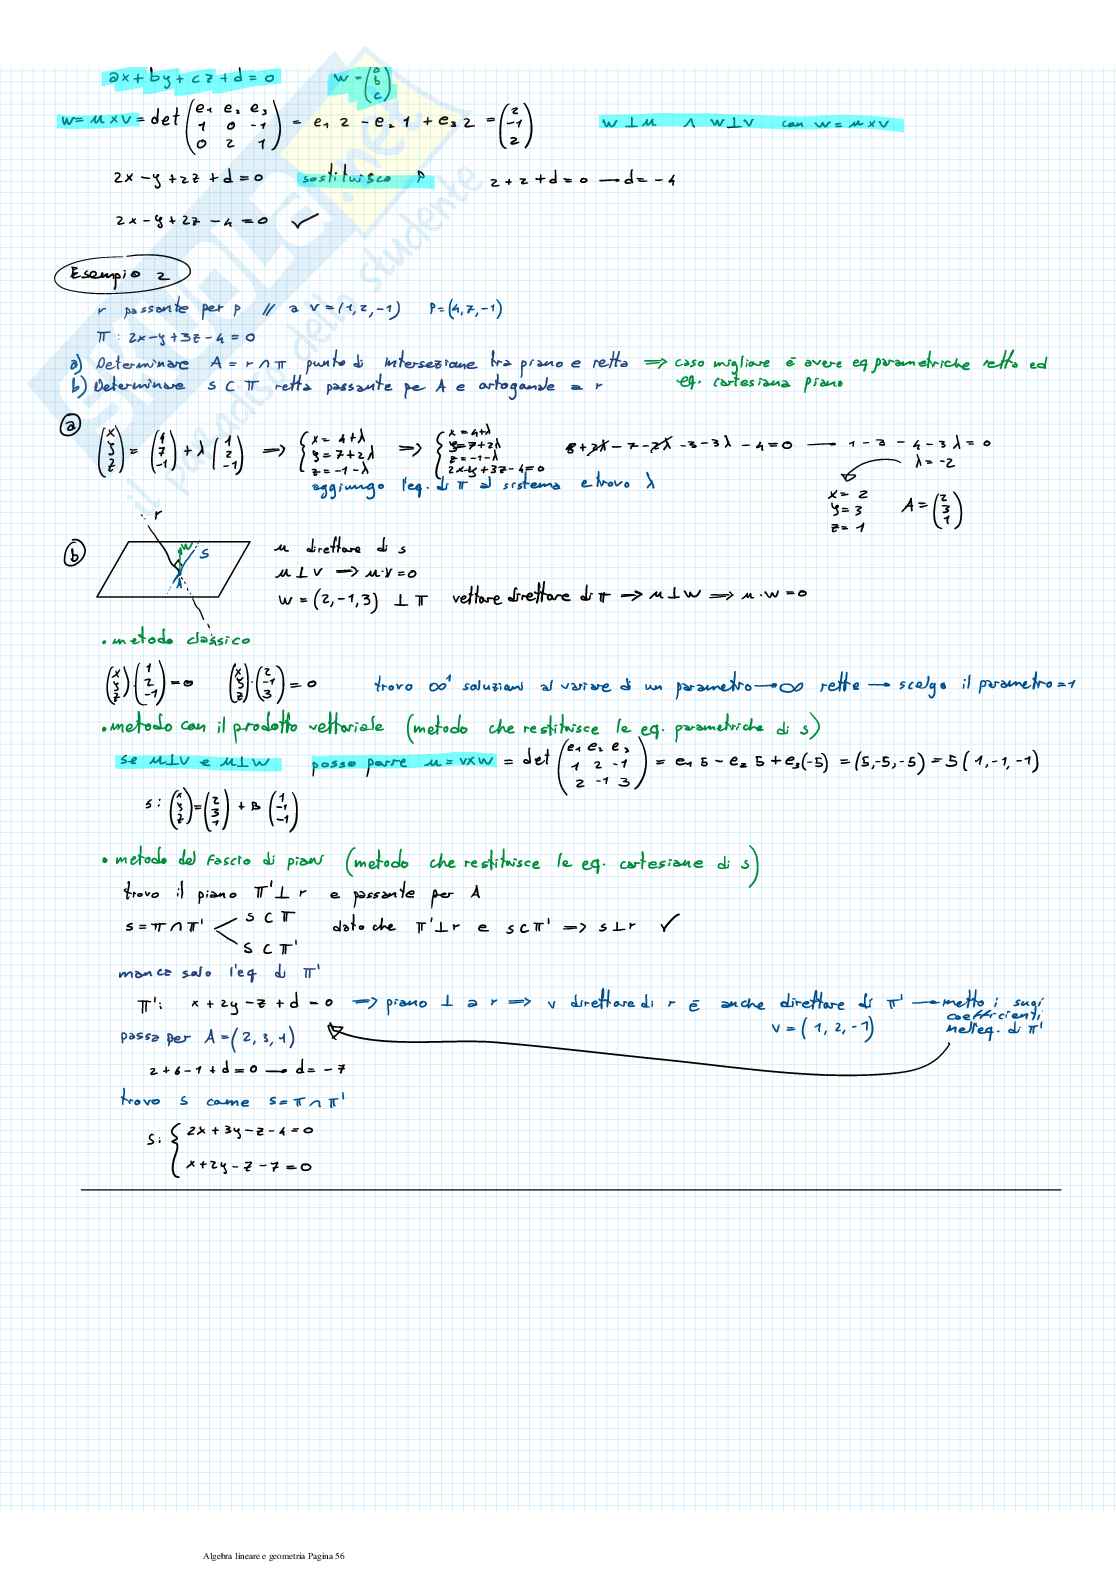 ax + by + cz + d = 0 w = (a b c)
w = u x v = det (e1 e2 e3 1 0 -1 0 2 1) = e1 2 - e2 1 + e3 2 = (2 -1 2) w ⊥ u ∧ w ⊥ v con w = u x v
2x - y + 2z + d = 0 sostituisco P 2 + 2 + d = 0 → d = -4
2x - y + 2z - 4 = 0 ✓
Esempio 2
r passante per p // a v = (1, 2, -1) P = (4, 7, -1)
π : 2x - y + 3z - 4 = 0
a) Determinare A = r ∩ π punto di intersezione tra piano e retta ⇒ caso migliore è avere eq parametriche retta ed
b) Determinare s ⊂ π retta passante pe A e ortogonale a r eq. cartesiana piano
a (x y z) = (4 7 -1) + λ (1 2 -1) ⇒ { x = 4+λ y = 7+2λ z = -1-λ ⇒ { x = 4+λ y = 7+2λ z = -1-λ 2x-y+3z-4=0 8 + 2λ - 7 - 2λ - 3 - 3λ - 4 = 0 → 1 - 3 - 4 - 3λ = 0
λ = -2
aggiungo l'eq. di π al sistema e trovo λ
x = 2 y = 3 z = 1 A = (2 3 1)
r
b w s A
u direttore di s
u ⊥ v → u·v = 0
w = (2, -1, 3) ⊥ π vettore direttore di π → u ⊥ w ⇒ u·w = 0
• metodo classico
(x y z)·(1 2 -1) = 0 (x y z)·(2 -1 3) = 0 trovo ∞¹ soluzioni al variare di un parametro → ∞ rette → scelgo il parametro = 1
• metodo con il prodotto vettoriale (metodo che restituisce le eq. parametriche di s)
se u⊥v e u⊥w posso porre u = v x w = det (e1 e2 e3 1 2 -1 2 -1 3) = e1 5 - e2 5 + e3(-5) = (5,-5,-5) = 5 (1,-1,-1)
s: (x y z) = (2 3 1) + β (1 -1 -1)
• metodo del fascio di piani (metodo che restituisce le eq. cartesiane di s)
trovo il piano π' ⊥ r e passante per A
s = π ∩ π' s ⊂ π s ⊂ π' dato che π' ⊥ r e s ⊂ π' ⇒ s ⊥ r ✓
manca solo l'eq di π'
π': x + 2y - z + d = 0 ⇒ piano ⊥ a r ⇒ v direttore di r è anche direttore di π' → metto i suoi
coefficienti
nell'eq. di π'
v = (1, 2, -1)
passa per A = (2, 3, 1)
2 + 6 - 1 + d = 0 → d = -7
trovo s come s = π ∩ π'
s: { 2x + 3y - z - 4 = 0
x + 2y - z - 7 = 0
Algebra lineare e geometria Pagina 56